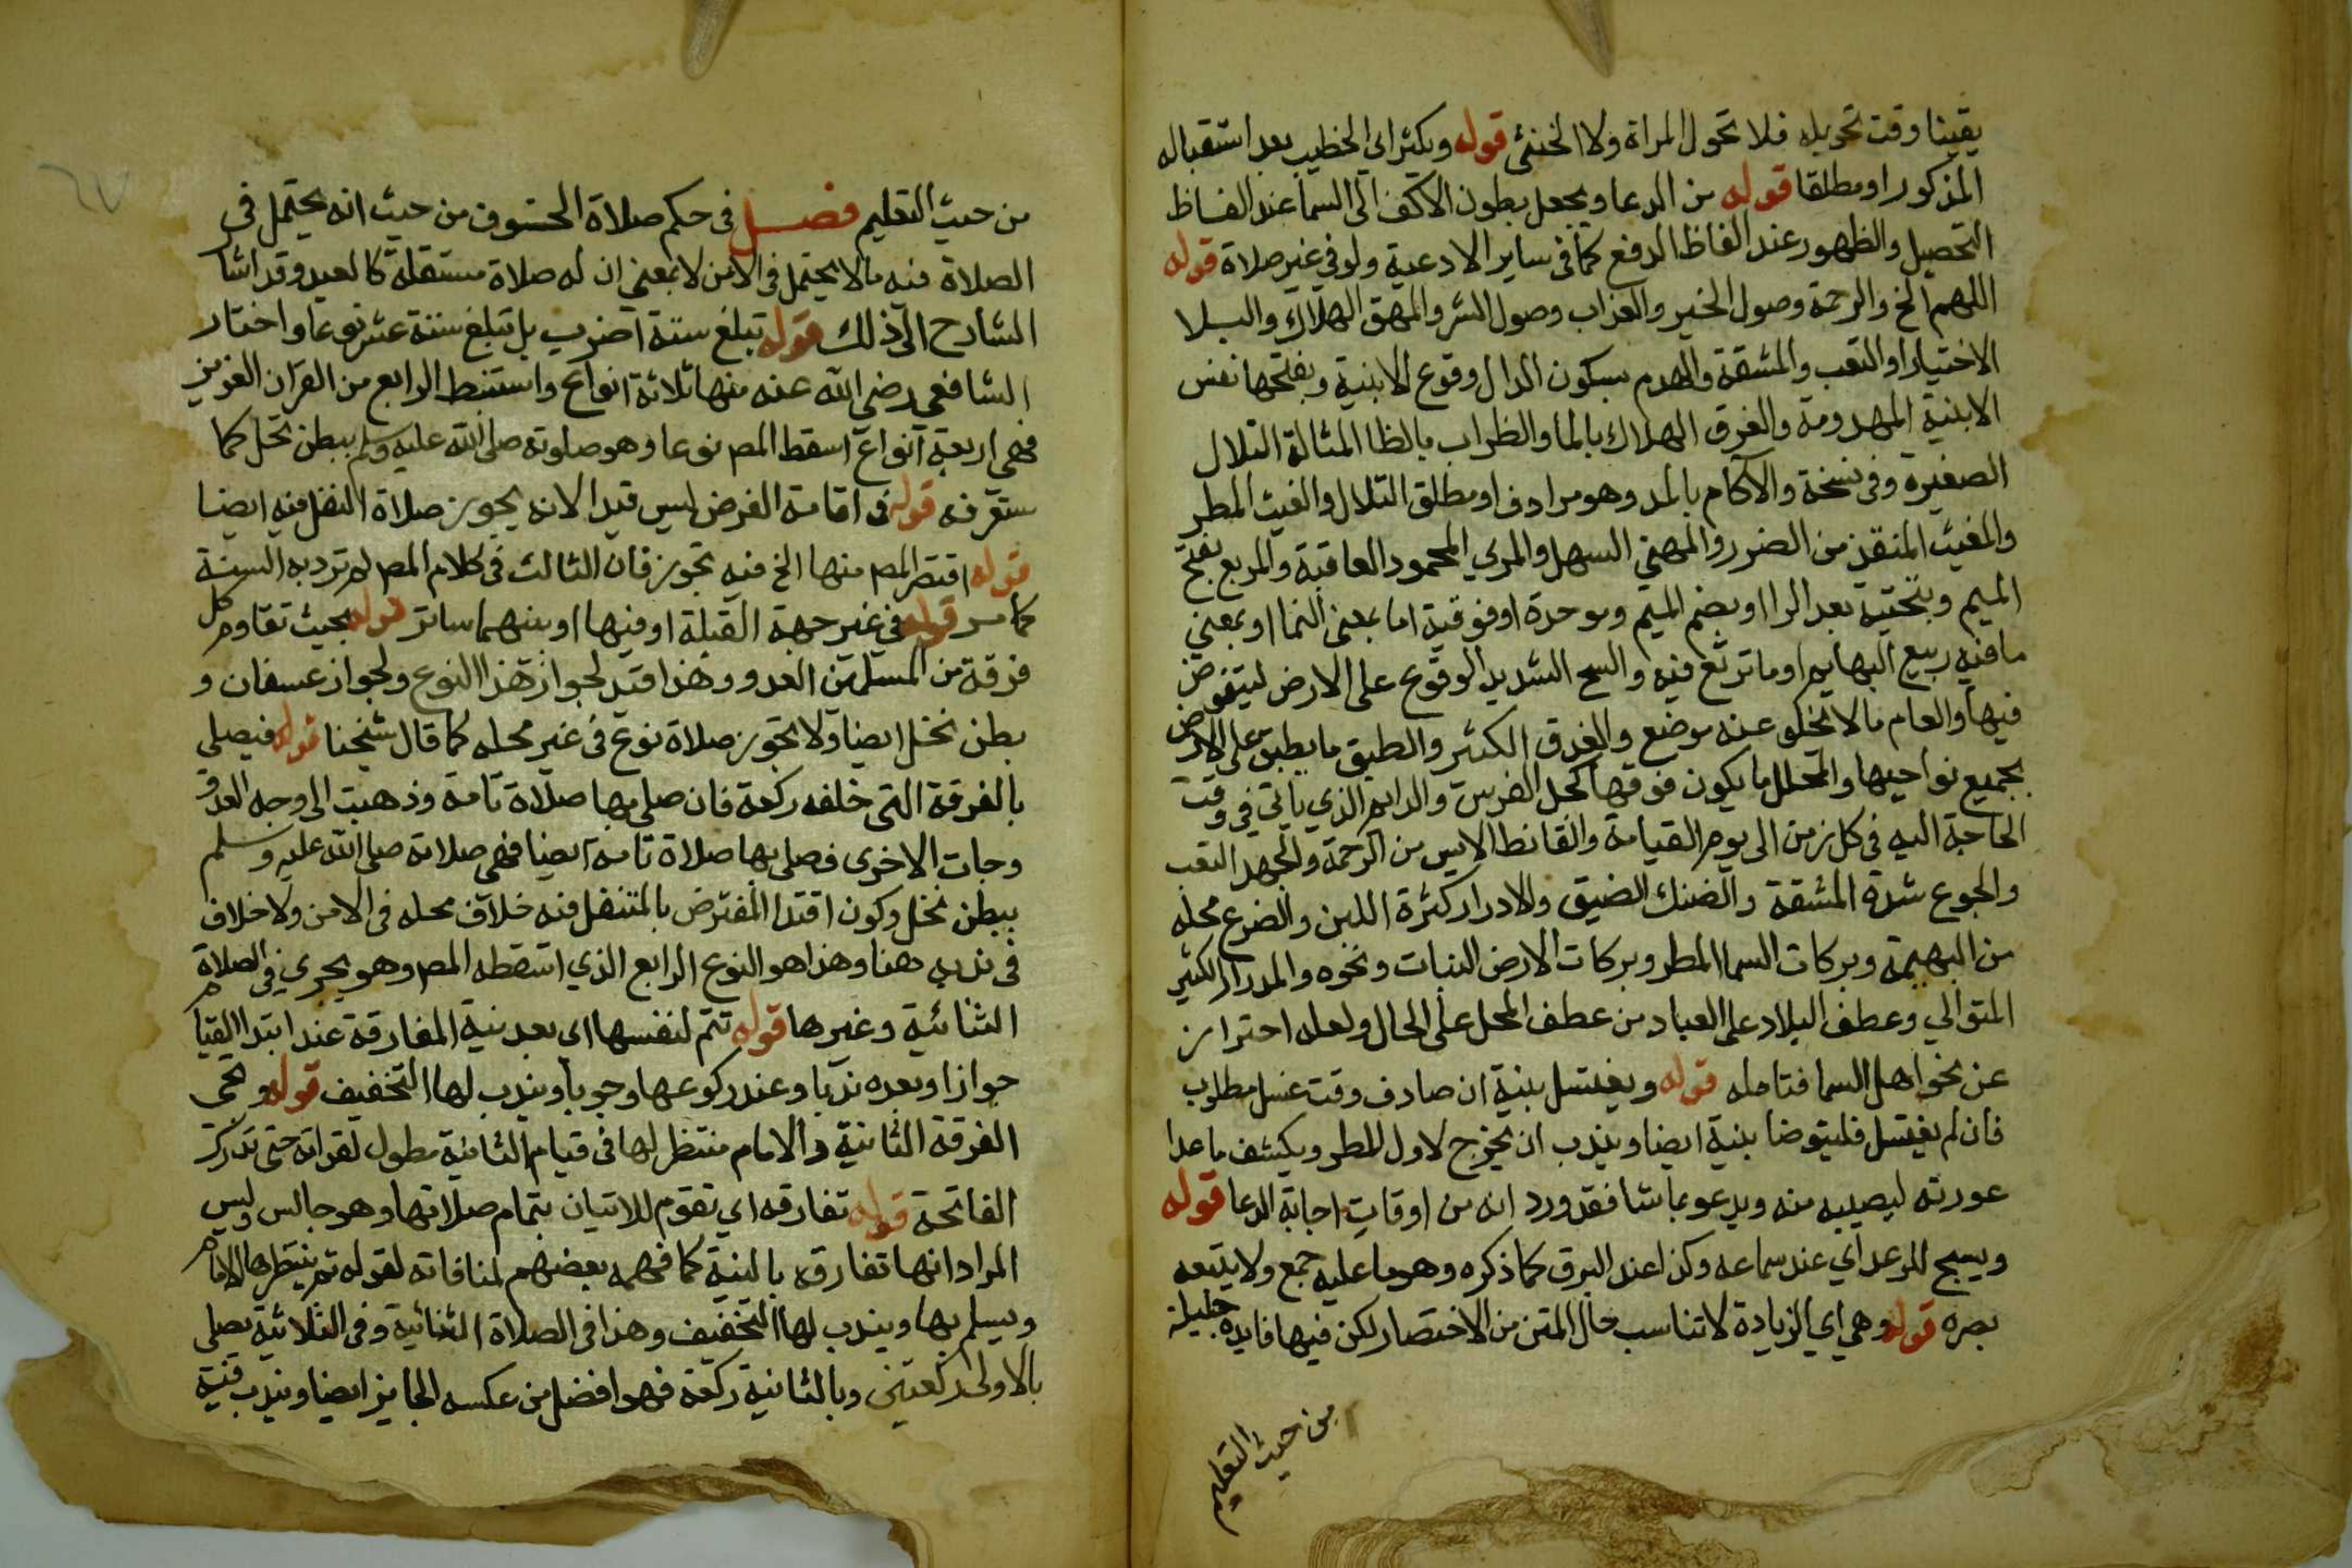 يقينا وقت تحويله فلا تحول المراة ولا الخنثى قوله ويكثر اي الخطيب بعد استقباله
المذكور او مطلقا قوله من الدعا ويجعل بطون الاكف الى السما عند الفاظ
التحصيل والظهور عند الفاظ الدفع كما في ساير الادعية ولو في غير صلاة قوله
اللهم الخ والرحمة وصول الخير والعذاب وصول الشر والمهق الهلاك والبلا
الاختبار او التعب والمشقة والهدم بسكون الدال وقوع الابنية وبفتحها نفس
الابنية المهدومة والغرق الهلاك بالما والظراب بالظا المثالة التلال
الصغيرة وفي نسخة والآكام بالمد وهو مرادف او مطلق التلال والغيث المطر
والمغيث المنقذ من الضرر والهني السهل والمري المحمود العاقبة والمريع بفتح
الميم وبتحتية بعد الرا او بضم الميم وموحدة او فوقية اما بمعنى النما او بمعنى
ما فيه ربيع البهايم او ما ترتع فيه والسح الشديد الوقوع على الارض ليتغوض
فيها والعام ما لا يخلو عنه موضع والغدق الكثير والطبق ما يطبق على الارض
بجميع نواحيها والمحلل ما يكون فوقها كجل الفرس والدايم الذي ياتي في وقت
الحاجة اليه في كل زمن الى يوم القيامة والقانط الايس من الرحمة والجهد التعب
والجوع شدة المشقة والضنك الضيق والادرار كثرة اللبن والضرع محله
من البهيمة وبركات السما المطر وبركات الارض النبات ونحوه والمدرار الكثير
المتوالي وعطف البلاد على العباد من عطف المحل على الحال ولعله احتراز
عن نحو اهل السما فتامله قوله ويغتسل بنية ان صادف وقت غسل مطلوب
فان لم يغتسل فليتوضا بنية ايضا ويندب ان يخرج لاول المطر ويكشف ما عدا
عورته ليصيبه منه ويدعو بما شا فقد ورد انه من اوقات اجابة الدعا قوله
ويسبح للرعد اي عند سماعه وكذا عند البرق كما ذكره وهو ما عليه جمع ولا يتبعه
بصره قوله وهي اي الزيادة لا تناسب حال المتن من الاختصار لكن فيها فايدة جليلة
من حيث التعليم
من حيث التعليم فصل في حكم صلاة الخوف من حيث انه يحتمل في
الصلاة فيه ما لا يحتمل في الامن لا بمعنى ان له صلاة مستقلة كالعيد وقد اشا
الشارح الى ذلك قوله تبلغ ستة اضرب بل تبلغ ستة عشر نوعا واختار
الشافعي رضي الله عنه منها ثلاثة انواع واستنبط الرابع من القران العزيز
فهي اربعة انواع اسقط المص نوعا وهو صلوته صلى الله عليه وسلم ببطن نخل كما
ستعرفه قوله في اقامة الفرض ليس قيدا لانه يجوز صلاة النفل فيه ايضا
قوله اقتصر المص منها الخ فيه تجوز فان الثالث في كلام المص لم ترد به السنة
كما مر قوله في غير جهة القبلة او فيها او بينهما ساتر قوله بحيث تقاوم كل
فرقة من المسلمين العدو وهذا قيد لجواز هذا النوع ولجواز عسفان و
بطن نخل ايضا ولا تجوز صلاة نوع في غير محله كما قال شيخنا قوله فيصلي
بالفرقة التي خلفه ركعة فان صلى بها صلاة تامة وذهبت الى وجه العدو
وجات الاخرى فصلى بها صلاة تامة ايضا فهي صلاته صلى الله عليه وسلم
ببطن نخل وكون اقتدا المفترض بالمتنفل فيه خلاف محله في الامن ولا خلاف
في ندبه هنا وهذا هو النوع الرابع الذي اسقطه المص وهو يجري في الصلاة
الثنائية وغيرها قوله تتم لنفسها اي بعد نية المفارقة عند ابتدا القيا
جوازا وبعده ندبا وعند ركوعها وجوبا ويندب لها التخفيف قوله وتجي
الفرقة الثانية والامام منتظر لها في قيام الثانية مطول لقراته حتى تدرك
الفاتحة قوله تفارقه اي تقوم للاتيان بتمام صلاتها وهو جالس وليس
المراد انها تفارقه بالنية كما فهمه بعضهم لمنافاته لقوله ثم ينتظرها الامام
ويسلم بها ويندب لها التخفيف وهذا في الصلاة الثنائية وفي الثلاثية يصلي
بالاولى ركعتين وبالثانية ركعة فهو افضل من عكسه الجايز ايضا ويندب فيه